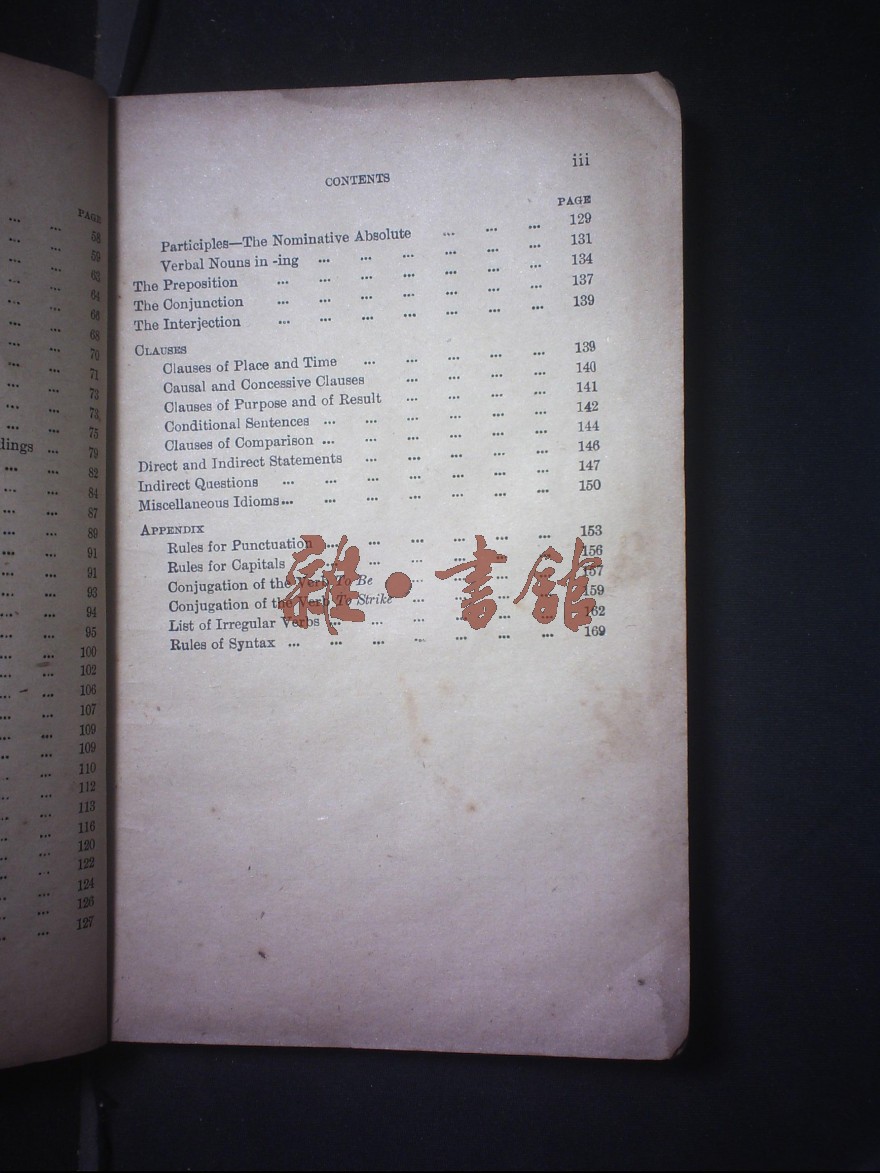 PAGE
... ... 58
... ... 59
... ... 63
... ... 64
... ... 66
... ... 68
... ... 70
... ... 71
... ... 73
... ... 73
... ... 75
dings ... 79
... ... 82
... ... 84
... ... 87
... ... 89
... ... 91
... ... 91
... ... 93
... ... 94
... ... 95
... ... 100
... ... 102
... ... 106
... ... 107
... ... 109
... ... 109
... ... 110
... ... 112
... ... 113
... ... 116
... ... 120
... ... 122
... ... 124
... ... 126
... ... 127
CONTENTS iii
PAGE
Participles—The Nominative Absolute ... ... ... 129
Verbal Nouns in -ing ... ... ... ... ... ... 131
The Preposition ... ... ... ... ... ... ... 134
The Conjunction ... ... ... ... ... ... ... 137
The Interjection ... ... ... ... ... ... ... 139
CLAUSES
Clauses of Place and Time ... ... ... ... ... 139
Causal and Concessive Clauses ... ... ... ... 140
Clauses of Purpose and of Result ... ... ... ... 141
Conditional Sentences ... ... ... ... ... ... 142
Clauses of Comparison ... ... ... ... ... ... 144
Direct and Indirect Statements ... ... ... ... ... 146
Indirect Questions ... ... ... ... ... ... ... 147
Miscellaneous Idioms... ... ... ... ... ... ... 150
APPENDIX
Rules for Punctuation ... ... ... ... ... ... 153
Rules for Capitals ... ... ... ... ... ... 156
Conjugation of the Verb To Be ... ... ... ... 157
Conjugation of the Verb To Strike ... ... ... ... 159
List of Irregular Verbs ... ... ... ... ... ... 162
Rules of Syntax ... ... ... ... ... ... ... 169
雜·書館